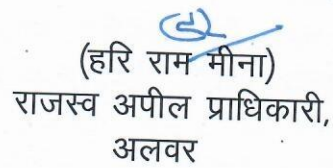 (हरि राम मीना)
राजस्व अपील प्राधिकारी,
अलवर